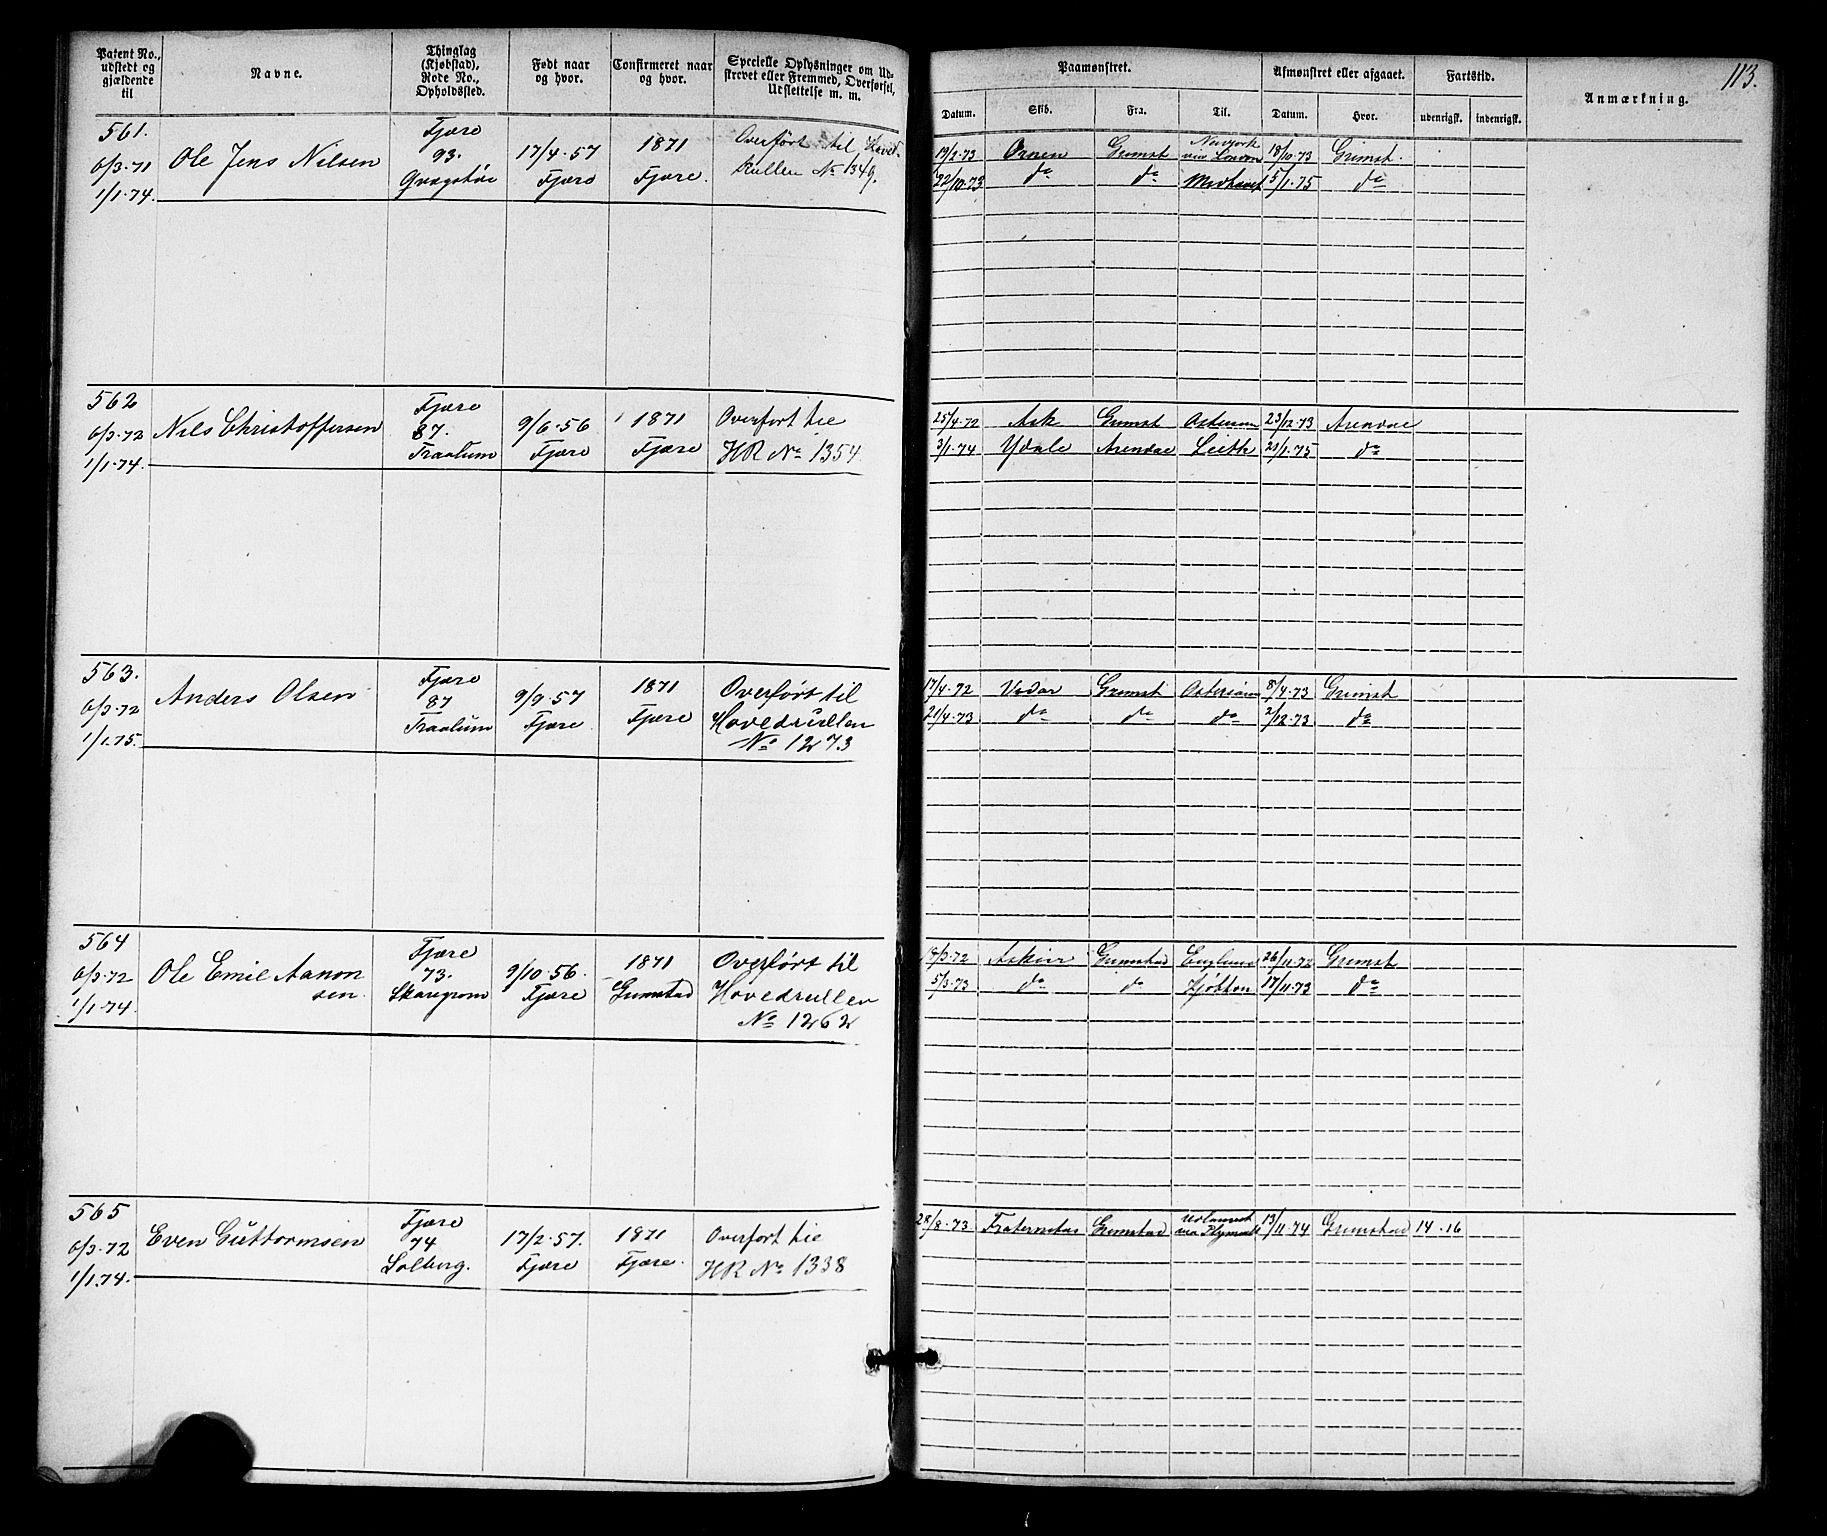 Patent No., udstedt og gjældende til
Navne.
Thinglag (Kjøbstad), Rode No., Opholdssted.
Født naar og hvor.
Confirmeret naar og hvor.
Specielle Oplysninger om Udskrevet eller Fremmed, Overførsel, Udslettelse m. m.
Paamønstret.
Afmønstret eller afgaaet.
Fartstid.
Anmærkning.
113.
Datum.
Skib.
Fra.
Til.
Datum.
Hvor.
udenrigsk.
indenrigsk.
561.
6/3.71
1/1.74.
Ole Jens Nilsen
Fjære
93.
17/4.57
Fjære
1871
Fjære.
Overført til Hoved-
Rullen No 1349.
19/2.73 Ørnen Grimst 18/10.73 Grimst.
22/10.73 do do 5/1.75 do
562
6/3.72
1/1.74.
Nils Christoffersen
Fjære
87.
Traalum
9/6.56
Fjære
1871
Fjære
Overført til
HR No 1354
25/4.72 Ask Grimst 23/12.73 Arendal
3/1.74 Ydale Arendal Leith 21/1.75 do
563.
6/3.72
1/1.75.
Anders Olsen
Fjære
87
Traalum
9/9.57
Fjære
1871
Fjære
Overført til
Hovedrullen
No 1273
17/4.72 Vedar Grimst Østersøen 8/4.73 Grimst
21/4.73 do do do 2/12.73 do
564
6/3.72
1/1.74.
Ole Emil Aanon
sen
Fjære
73.
9/10.56.
Fjære
1871
Grimstad
Overført til
Hovedrullen
No 1262
18/3.72 Grimstad England 26/11.72 Grimst
5/3.73 do do 17/11.73 do
565
6/3.72
1/1.74.
Even Guttormsen
Fjære
74
Solberg.
17/2.57.
Fjære
1871
Fjære.
Overført til
HR No 1338
28/8.73 Fraternitas Grimstad via Plymouth 13/11.74 Grimstad 14.16